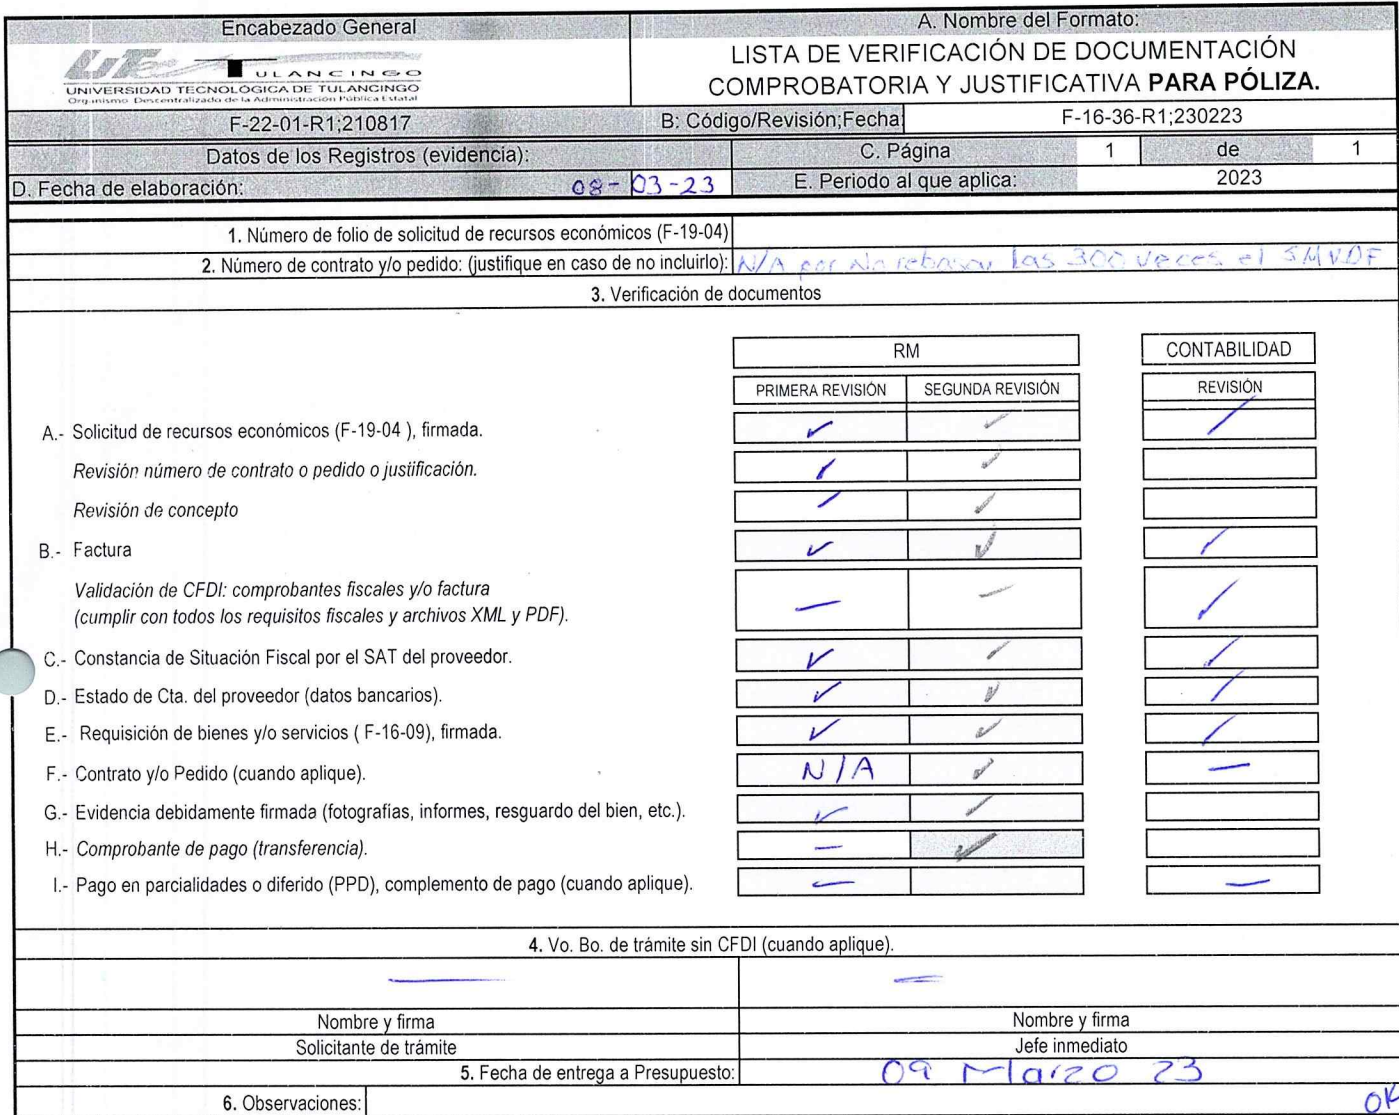 Encabezado General
A. Nombre del Formato:
UTec TULANCINGO
UNIVERSIDAD TECNOLÓGICA DE TULANCINGO
Organismo Descentralizado de la Administración Pública Estatal
LISTA DE VERIFICACIÓN DE DOCUMENTACIÓN
COMPROBATORIA Y JUSTIFICATIVA PARA PÓLIZA.
F-22-01-R1;210817
B: Código/Revisión;Fecha
F-16-36-R1;230223
Datos de los Registros (evidencia):
C. Página 1 de 1
D. Fecha de elaboración: 08-03-23
E. Periodo al que aplica: 2023
1. Número de folio de solicitud de recursos económicos (F-19-04)
2. Número de contrato y/o pedido: (justifique en caso de no incluirlo): N/A por No rebasar las 300 veces el SMVDF
3. Verificación de documentos
RM
CONTABILIDAD
PRIMERA REVISIÓN
SEGUNDA REVISIÓN
REVISIÓN
A.- Solicitud de recursos económicos (F-19-04 ), firmada.
Revisión número de contrato o pedido o justificación.
Revisión de concepto
B.- Factura
Validación de CFDI: comprobantes fiscales y/o factura
(cumplir con todos los requisitos fiscales y archivos XML y PDF).
C.- Constancia de Situación Fiscal por el SAT del proveedor.
D.- Estado de Cta. del proveedor (datos bancarios).
E.- Requisición de bienes y/o servicios ( F-16-09), firmada.
F.- Contrato y/o Pedido (cuando aplique). N/A
G.- Evidencia debidamente firmada (fotografías, informes, resguardo del bien, etc.).
H.- Comprobante de pago (transferencia).
I.- Pago en parcialidades o diferido (PPD), complemento de pago (cuando aplique).
4. Vo. Bo. de trámite sin CFDI (cuando aplique).
Nombre y firma
Nombre y firma
Solicitante de trámite
Jefe inmediato
5. Fecha de entrega a Presupuesto: 09 Marzo 23
6. Observaciones: OK